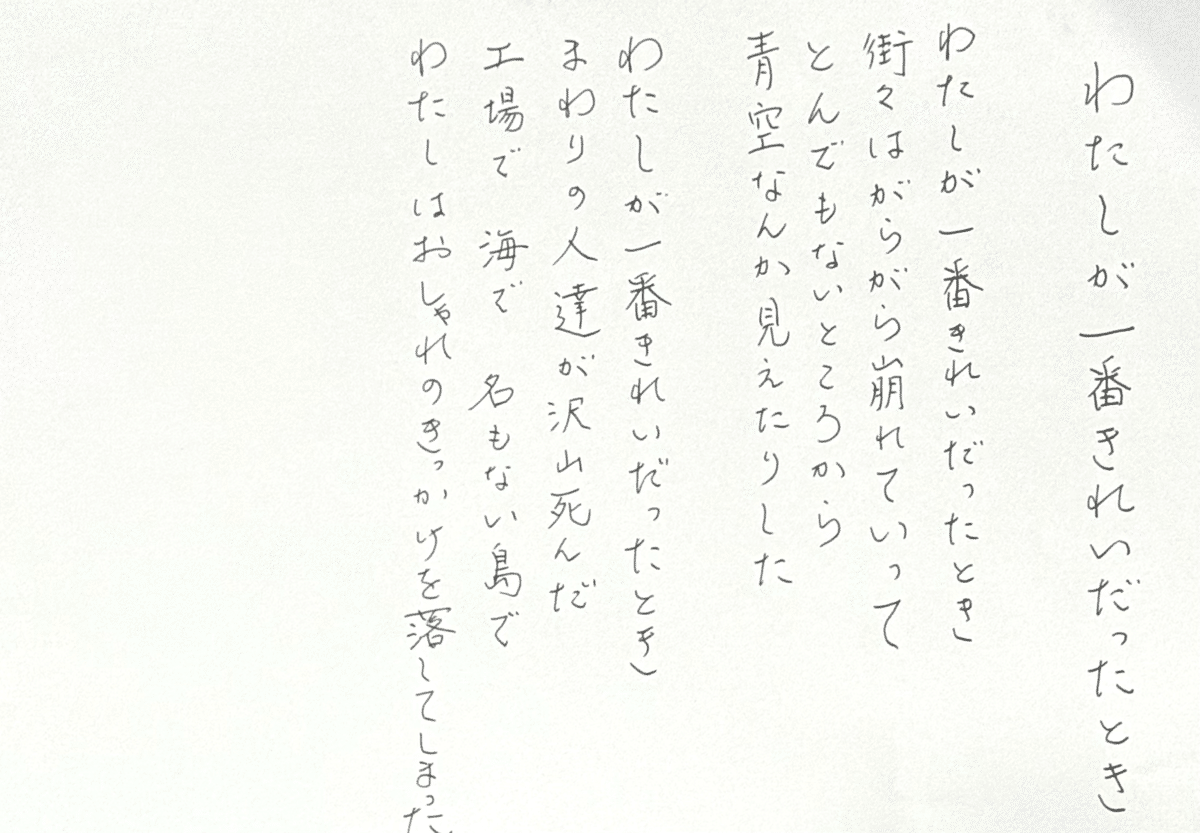 わたしが一番きれいだったとき
わたしが一番きれいだったとき
街々はがらがら崩れていって
とんでもないところから
青空なんか見えたりした
わたしが一番きれいだったとき
まわりの人達が沢山死んだ
工場で 海で 名もない島で
わたしはおしゃれのきっかけを落してしまった